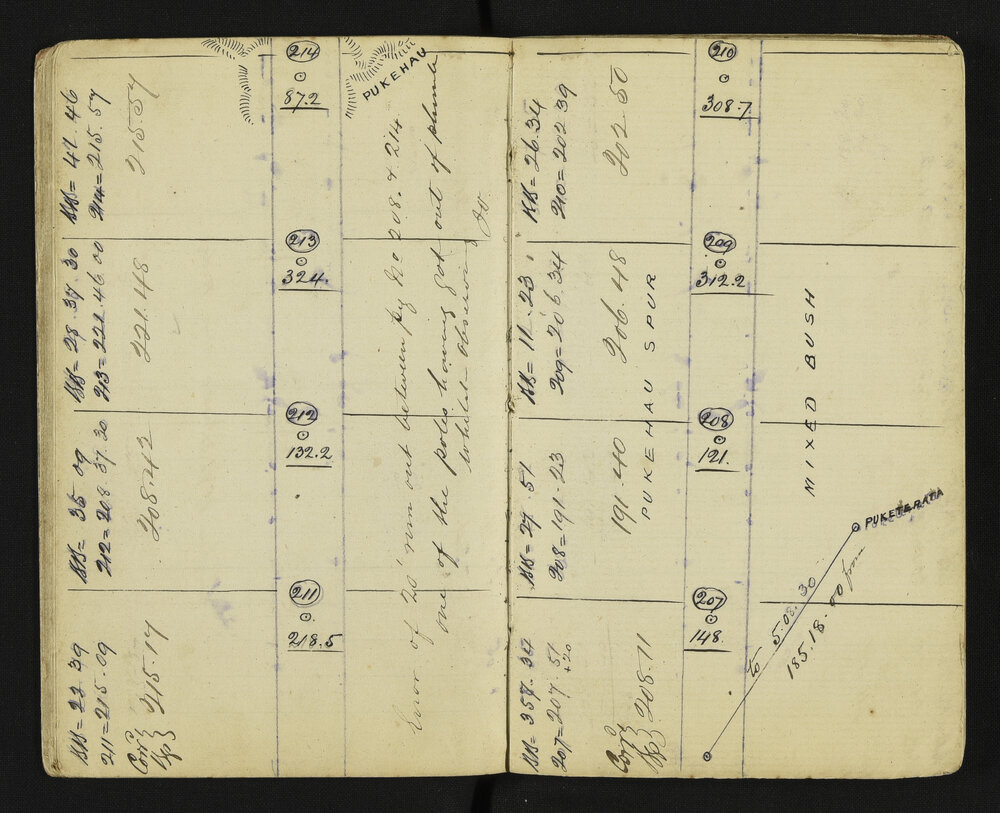 214
87.2
213
324.
212
132.2
211
218.5
PUKEHAU
KK = 41.46
214 = 215.57
215.57
KK = 28.37.30
213 = 221.46.00
221.48
KK = 35.09
212 = 208.37.30
208.42
KK = 23.39
211 = 215.09
215.17
Error of 20' run out between peg No 208. & 214.
one of the poles having got out of plumb
whilst observing
210
308.7
209
312.2
208
121.
207
148.
KK = 26.34
210 = 202.39
202.50
KK = 11.23
209 = 206.34
206.48
KK = 27.51
208 = 191.23
191.40
207 = 207.51
+20
208.11
PUKEHAU SPUR
MIXED BUSH
PUKETERATA
to 5.08.30
185.18.00 from